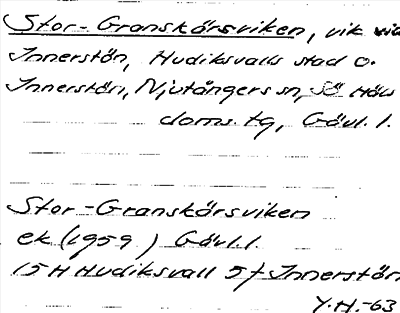 Stor-Granskärsviken, vik vid
Innerstön, Hudiksvalls stad o.
Innerstön, Njutångers sn, Sö Häls
doms. tg, Gävl. l.
Stor-Granskärsviken
ek (1959) Gävl. l.
15 H Hudiksvall 5 f Innerstön
Y.H.-63